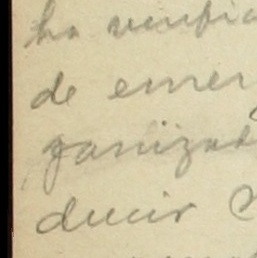 ha verific
de emer
ganizad
decir